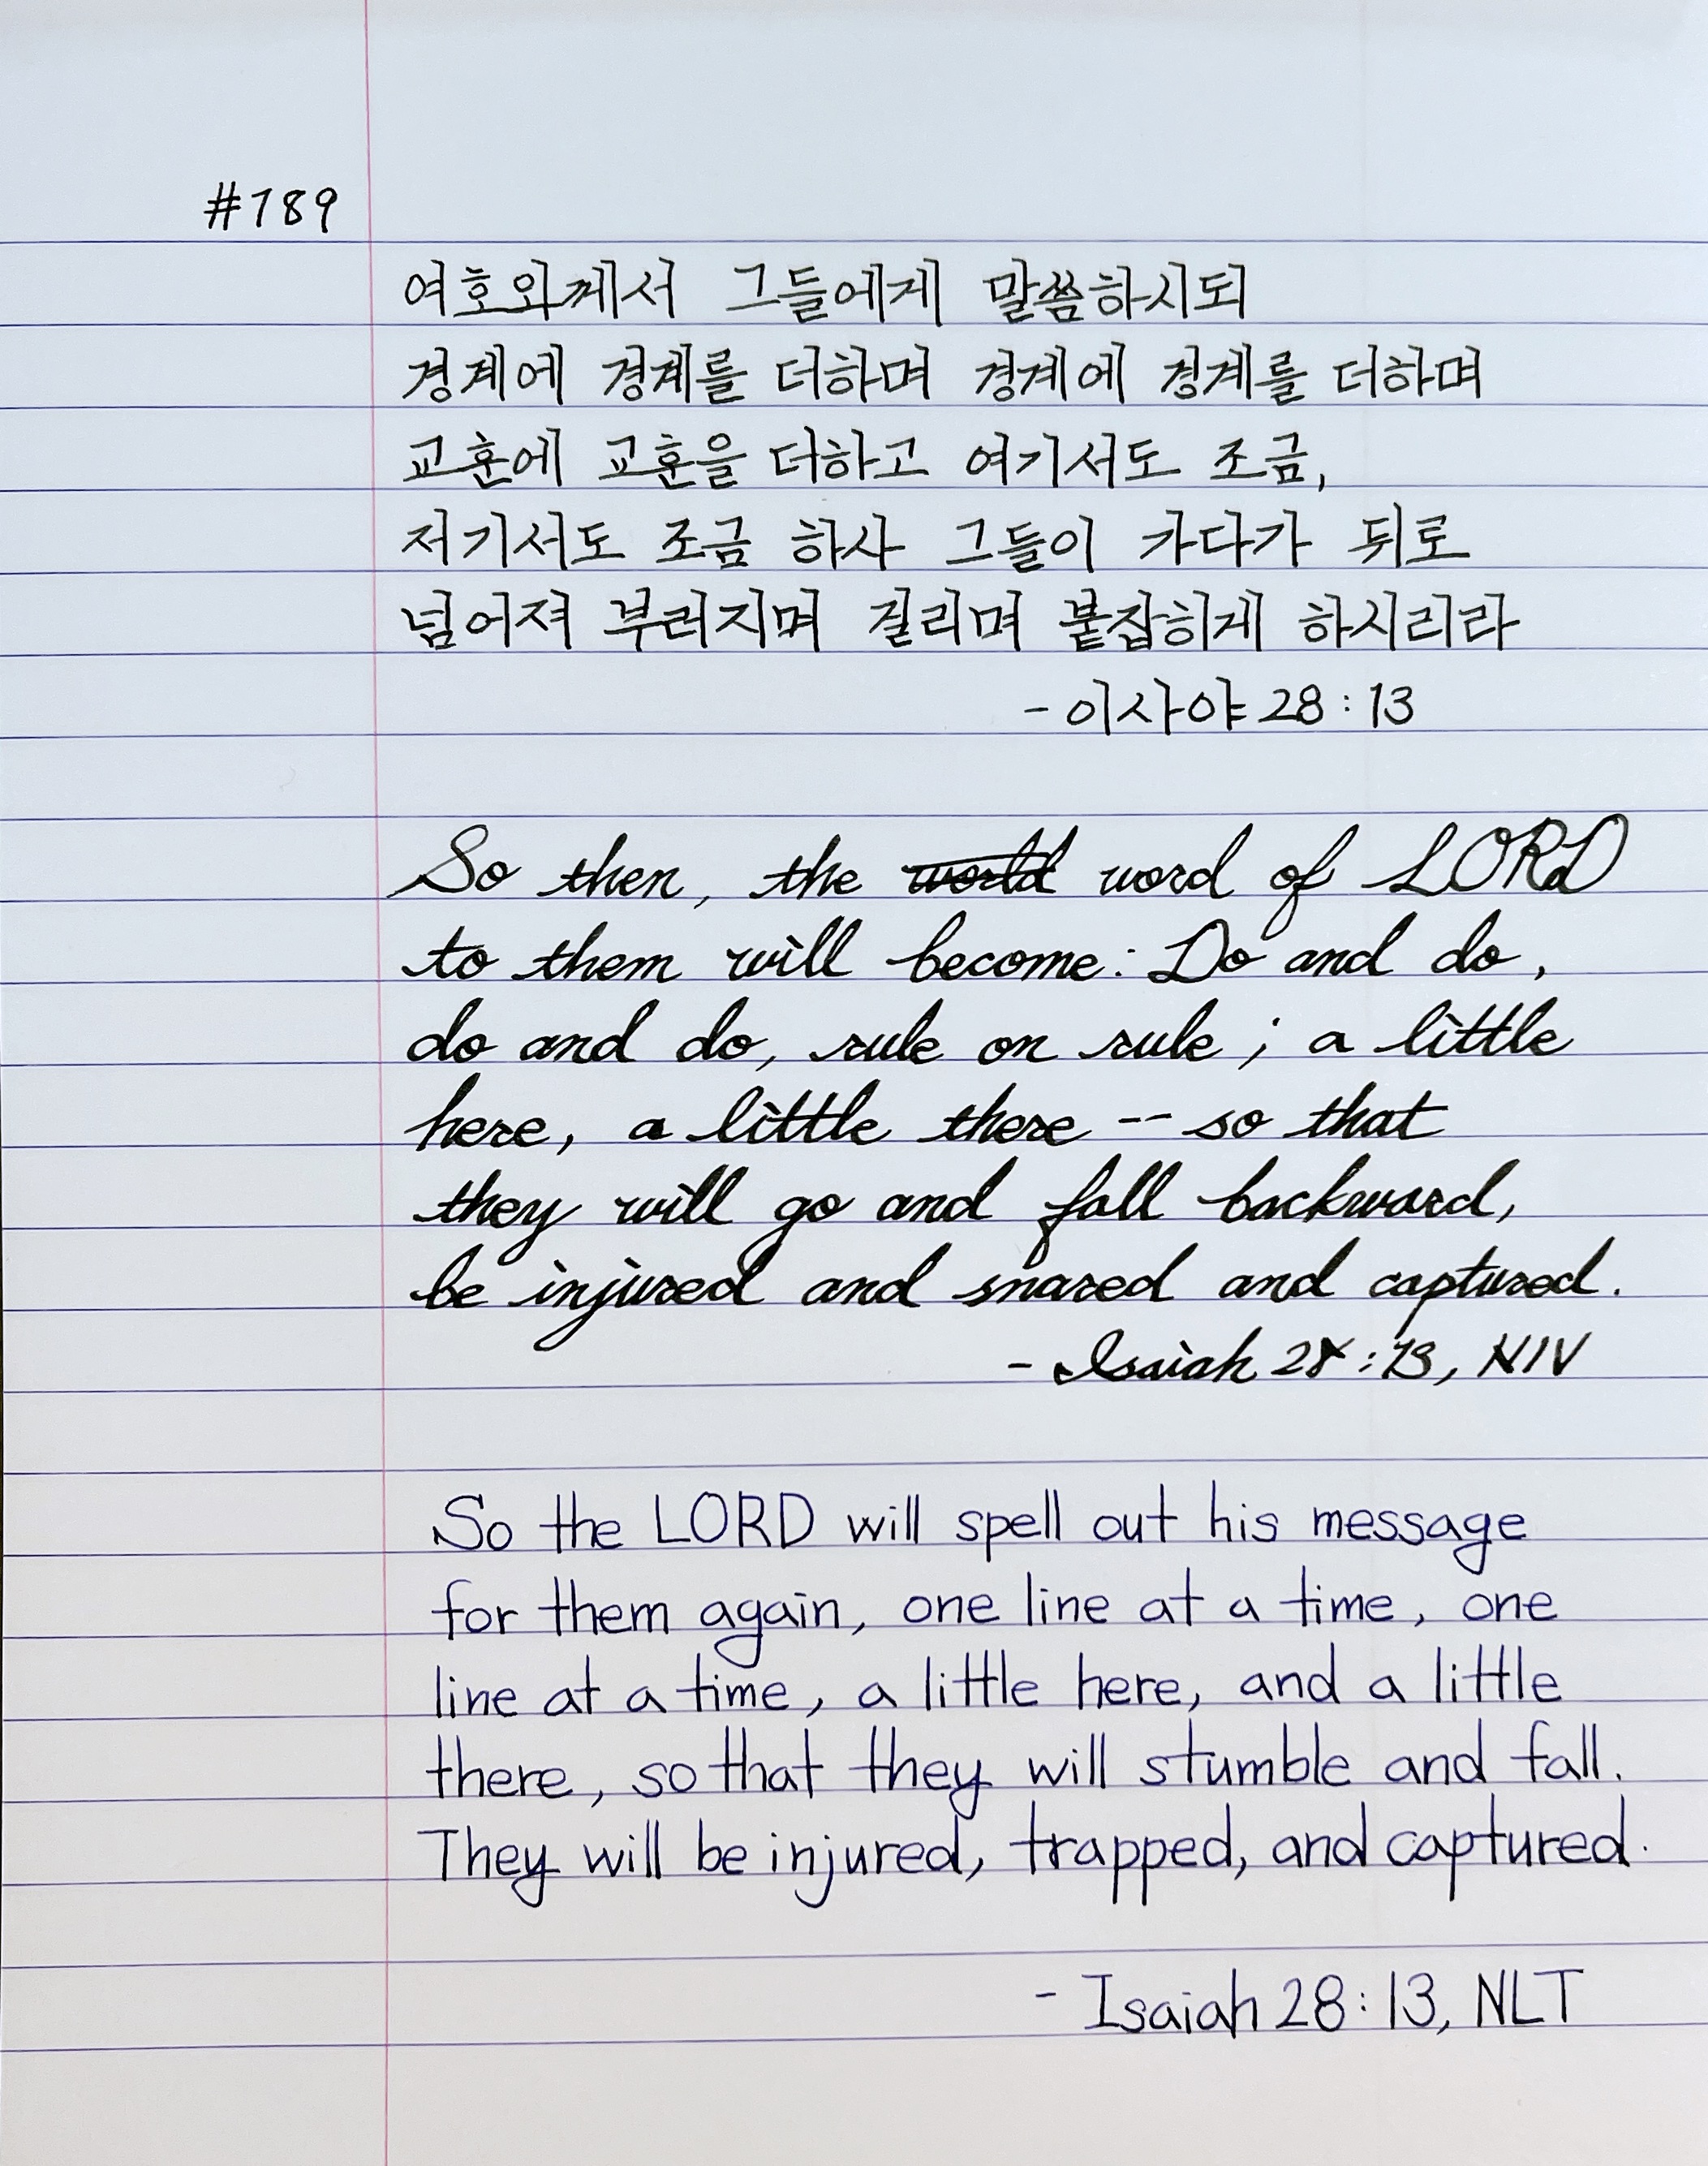 #189
여호와께서 그들에게 말씀하시되
경계에 경계를 더하며 경계에 경계를 더하며
교훈에 교훈을 더하고 여기서도 조금,
저기서도 조금 하사 그들이 가다가 뒤로
넘어져 부러지며 걸리며 붙잡히게 하시리라
- 이사야 28:13
So then, the world word of LORD
to them will become: Do and do,
do and do, rule on rule; a little
here, a little there -- so that
they will go and fall backward,
be injured and snared and captured.
- Isaiah 28:13, NIV
So the LORD will spell out his message
for them again, one line at a time, one
line at a time, a little here, and a little
there, so that they will stumble and fall.
They will be injured, trapped, and captured.
- Isaiah 28:13, NLT